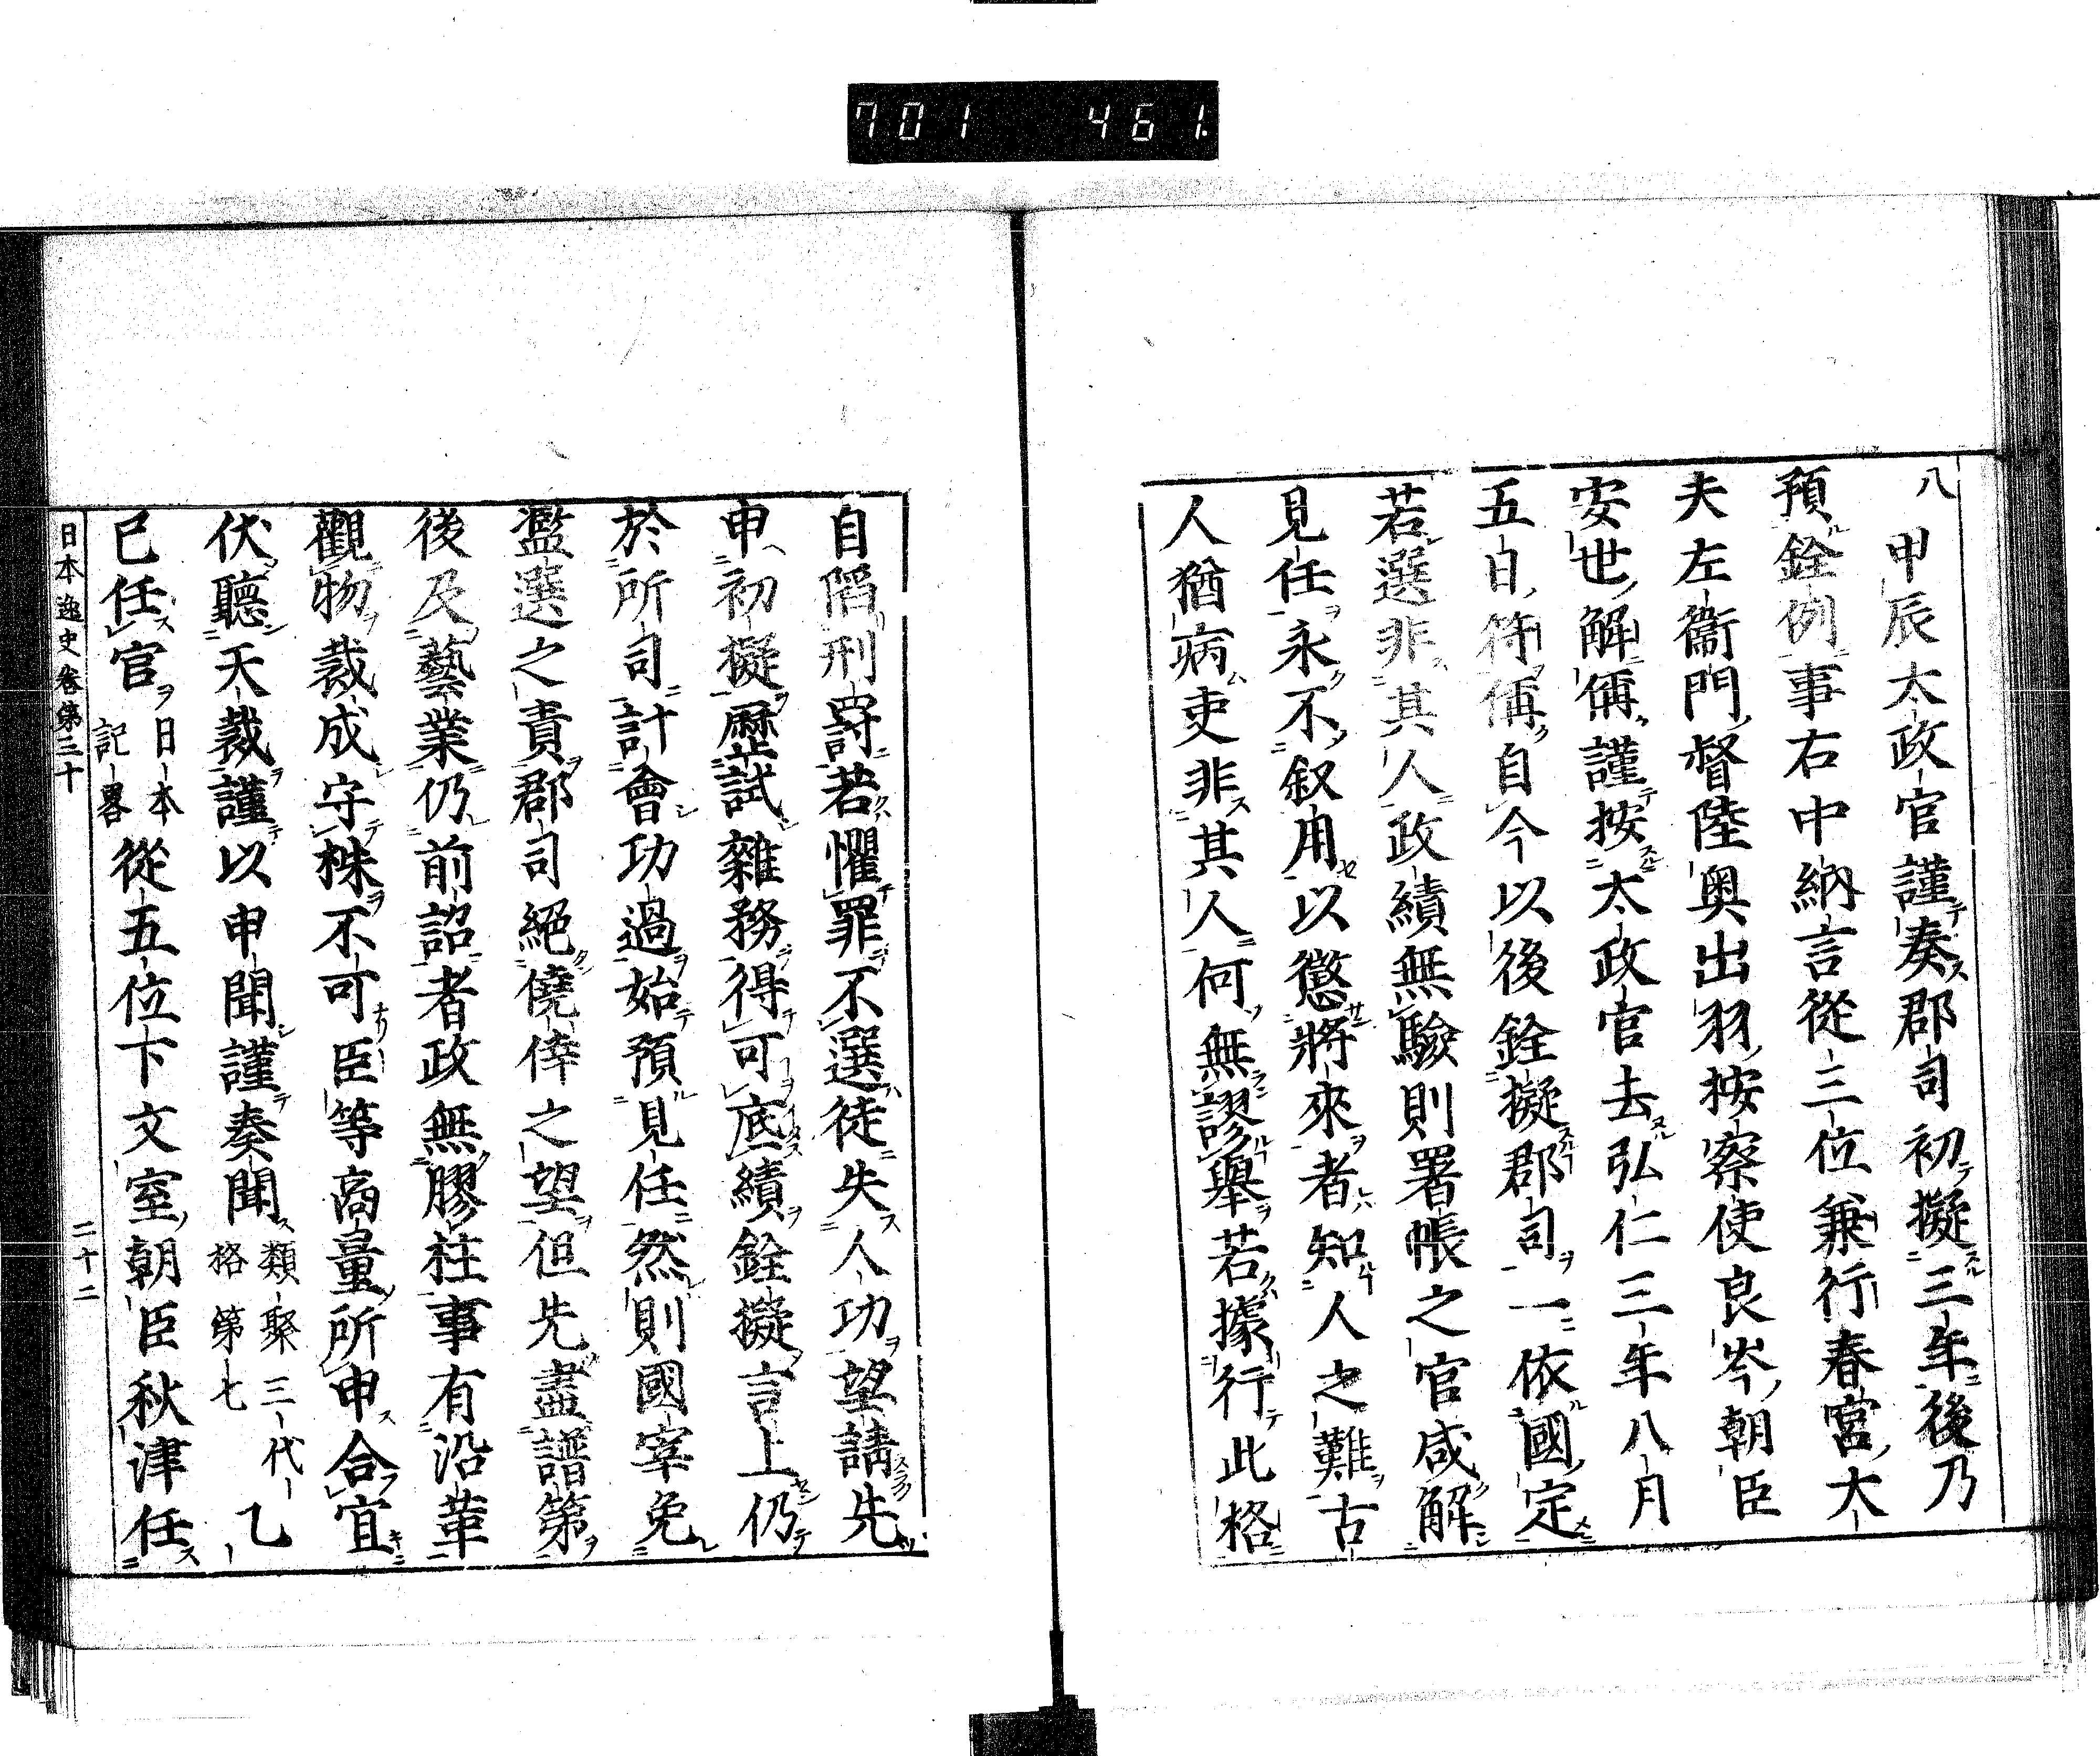 701 461
八
甲辰太政官謹奏郡司初擬三年後乃
預銓例事右中納言從三位兼行春宮大
夫左衞門督陸奥出羽按察使良岑朝臣
安世解偁謹按太政官去弘仁三年八月
五日符偁自今以後銓擬郡司一依國定
若選非其人政績無驗則署帳之官咸解
見任永不叙用以懲將來者知人之難古
人猶病吏非其人何無謬擧若據行此格
自䧟刑罸若懼罪不選徒失人功望請先
申初擬歷試雜務得可底績銓擬言上仍
於所司計會功過始預見任然則國宰免
濫選之責郡司絕僥倖之望但先盡譜第
後及藝業仍前詔者政無膠柱事有沿革
觀物裁成守株不可臣等商量所申合宜
伏聽天裁謹以申聞謹奏聞類聚三代格第七乙
巳任官日本記畧從五位下文室朝臣秋津任
日本逸史卷第三十 二十二